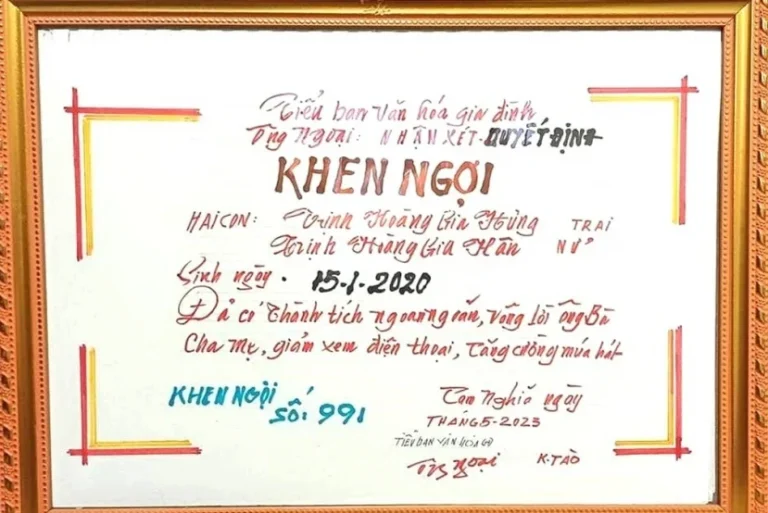 Tiểu ban văn hóa gia đình
Ông Ngoại: NHẬN XÉT - QUYẾT ĐỊNH
KHEN NGỢI
HAI CON: Trịnh Hoàng Gia Hưng TRAI
Trịnh Hoàng Gia Hân NỮ
Sinh ngày. 15-1-2020
Đả có thành tích ngoan ngoãn, vâng lời ông Bà
Cha mẹ, giảm xem điện thoại, tăng cường múa hát
KHEN NGỘI
SỐ: 991
Tam Nghĩa ngày
THÁNG 5-2023
TIỂU BAN VĂN HÓA GĐ
Ông ngoại K-TÀO